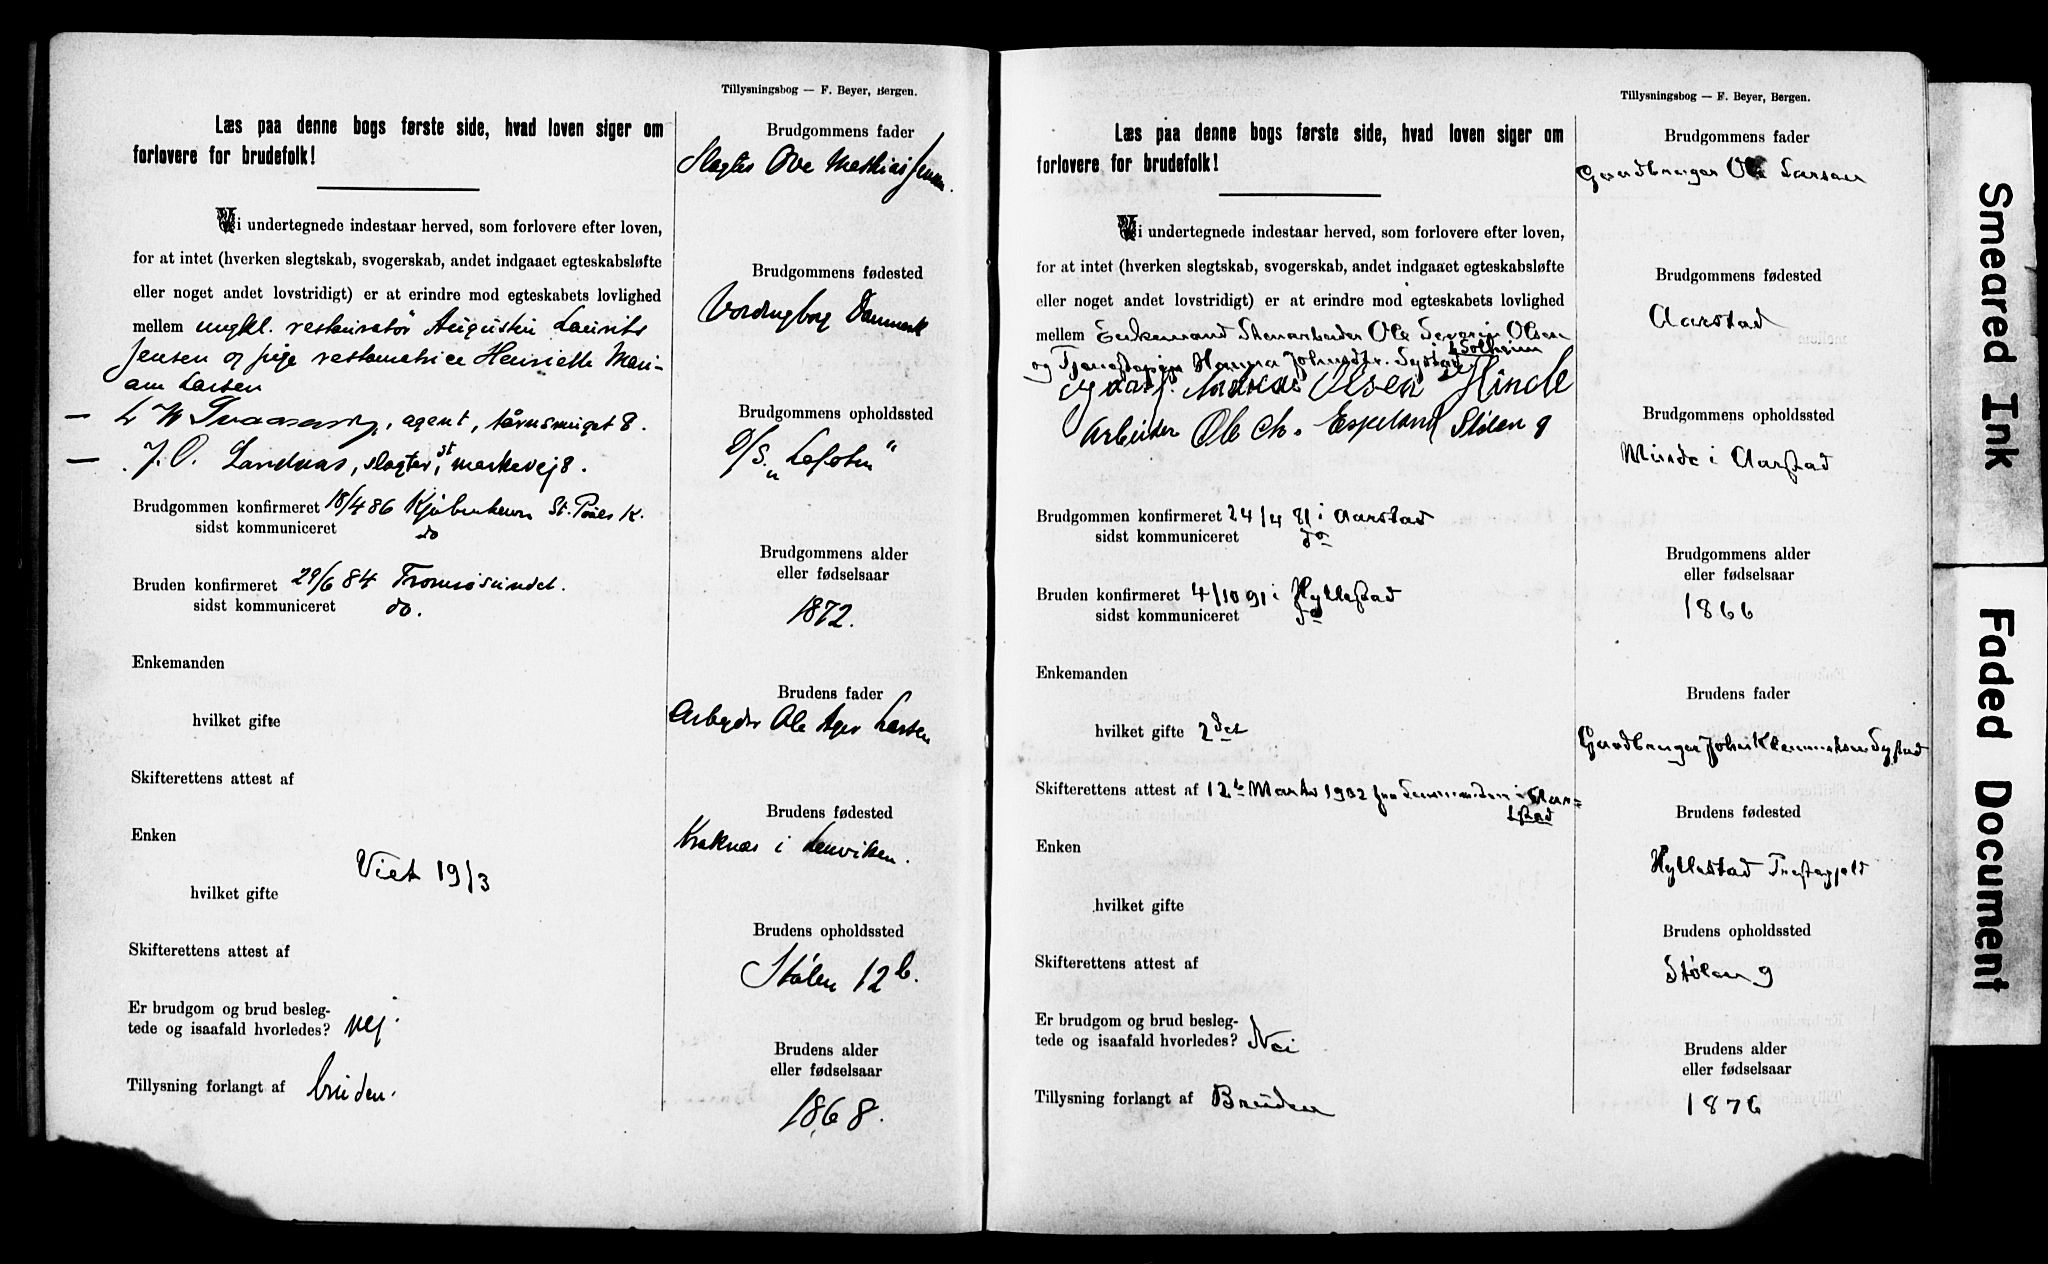 Tillysningsbog — F. Beyer, Bergen.
Læs paa denne bogs første side, hvad loven siger om
forlovere for brudefolk!
Vi undertegnede indestaar herved, som forlovere efter loven,
for at intet (hverken slegtskab, svogerskab, andet indgaaet egteskabsløfte
eller noget andet lovstridigt) er at erindre mod egteskabets lovlighed
mellem ungkl. restauratør Augustin Laurits
Jensen og pige restauratrice Henriette Mari-
am Larsen
L W , agent, tårnsmuget 8.
J. O. Landnas, slagter, st markevej 8.
Brudgommen konfirmeret 18/4 86 Kjøbenhavn St. Pauls K.
sidst kommuniceret do
Bruden konfirmeret 29/6 84 Tromsøsundet.
sidst kommuniceret do.
Enkemanden
hvilket gifte
Skifterettens attest af
Enken
Viet 19/3
hvilket gifte
Skifterettens attest af
Er brudgom og brud besleg-
tede og isaafald hvorledes? nej.
Tillysning forlangt af bruden.
Brudgommens fader
Slagter Ove Mathias Jensen.
Brudgommens fødested
Vordingborg Danmark
Brudgommens opholdssted
D/S. „Lofoten“
Brudgommens alder
eller fødselsaar
1872.
Brudens fader
Arbejder Ole Ager Larsen
Brudens fødested
Kraknæs i Lenviken.
Brudens opholdssted
Stølen 12 b.
Brudens alder
eller fødselsaar
1868.
Tillysningsbog — F. Beyer, Bergen.
Læs paa denne bogs første side, hvad loven siger om
forlovere for brudefolk!
Vi undertegnede indestaar herved, som forlovere efter loven,
for at intet (hverken slegtskab, svogerskab, andet indgaaet egteskabsløfte
eller noget andet lovstridigt) er at erindre mod egteskabets lovlighed
mellem Enkemand Stenarbeider Ole Severin Olsen
Solheim
og Tjenestepige Hanna Johnsdtr. Systad
Olsen Hinde
Arbeider Ole Ch. Espeland Stølen 9
Brudgommen konfirmeret 24/4 81 i Aarstad
sidst kommuniceret do
Bruden konfirmeret 4/10 91 i Hyllestad
sidst kommuniceret do
Enkemanden
hvilket gifte 2det
Skifterettens attest af 12te Marts 1902 fra Lensmanden i Aar=
stad
Enken
hvilket gifte
Skifterettens attest af
Er brudgom og brud besleg-
tede og isaafald hvorledes? Nei
Tillysning forlangt af Bruden
Brudgommens fader
Gaardbruger Ole Larsen
Brudgommens fødested
Aarstad
Brudgommens opholdssted
Minde i Aarstad
Brudgommens alder
eller fødselsaar
1866
Brudens fader
Gaardbruger John Klemmetsen Systad
Brudens fødested
Hyllestad Prestegjeld
Brudens opholdssted
Stølen 9
Brudens alder
eller fødselsaar
1876
Smeared Ink
Faded Document